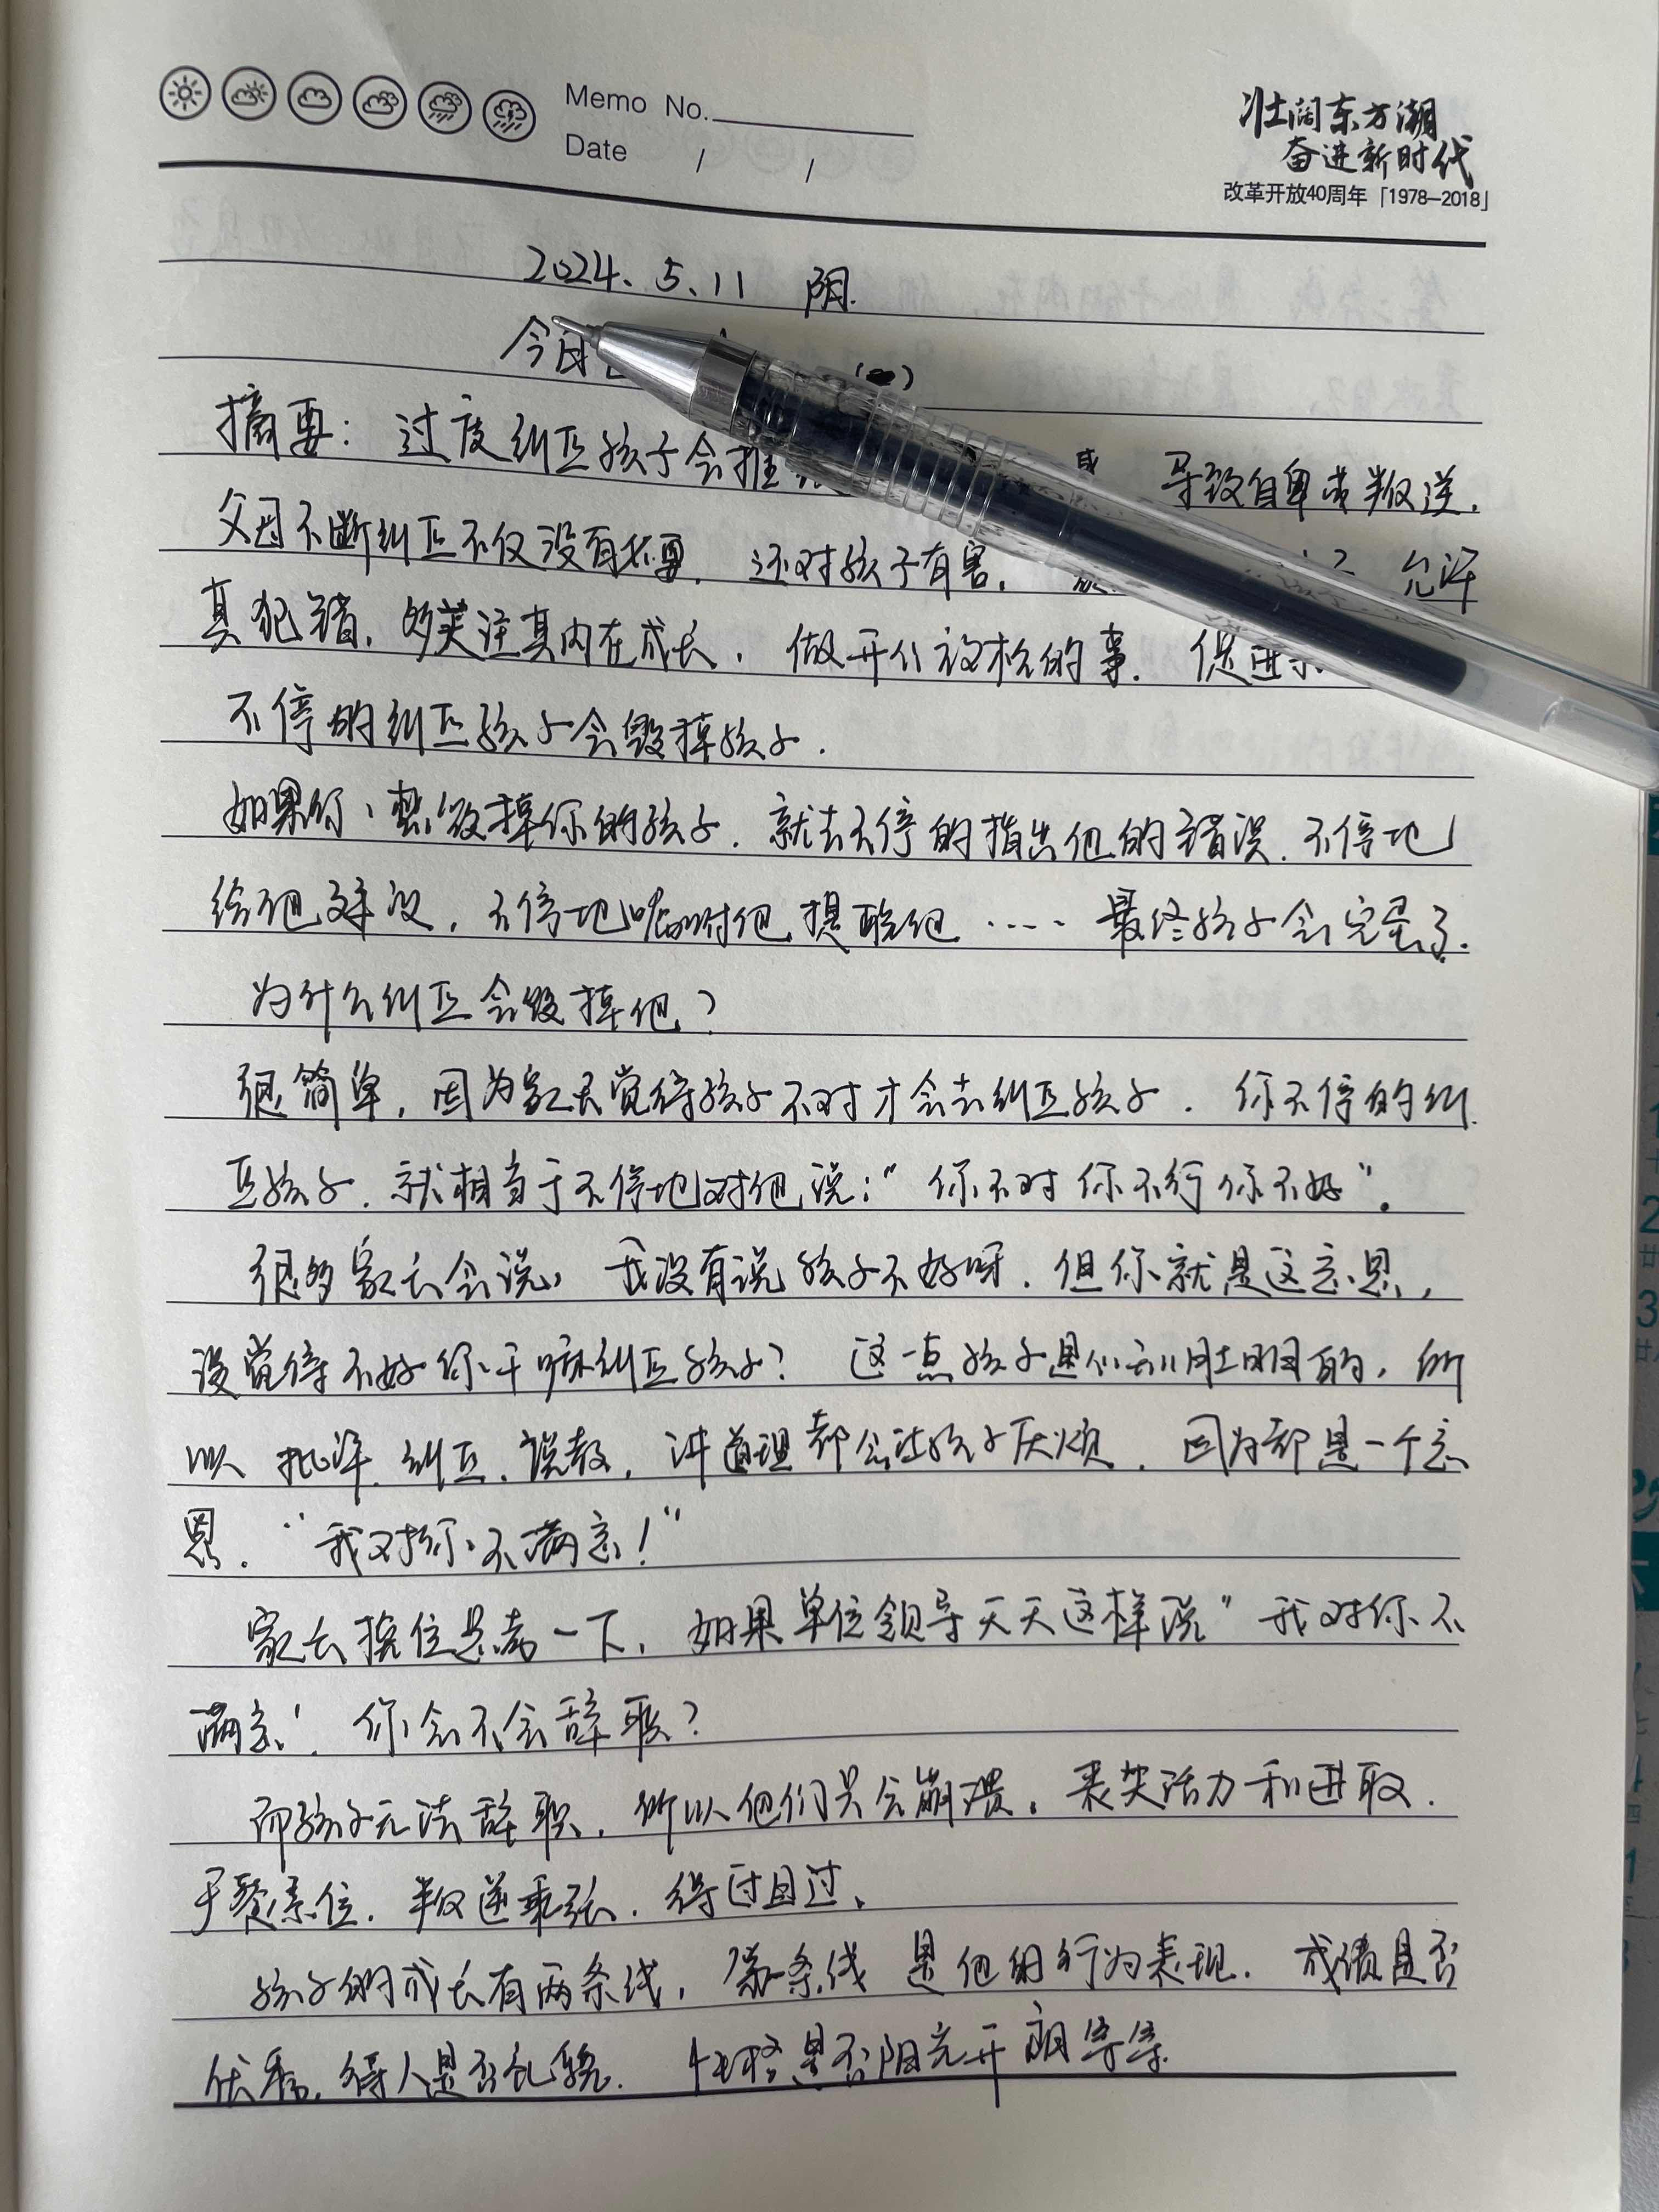 Memo No.
Date / /
壮阔东方潮
奋进新时代
改革开放40周年「1978—2018」
2024.5.11 阴.
今日
摘要：过度纠正孩子会摧 或 导致自卑或叛逆.
父母不断纠正不仅没有必要，还对孩子有害. 允许
其犯错，多关注其内在成长，做开心放松的事. 促进
不停的纠正孩子会毁掉孩子.
如果你想毁掉你的孩子. 就去不停的指出他的错误. 不停地
给他建议，不停地嘱咐他提醒他…… 最终孩子会完蛋了.
为什么纠正会毁掉他?
很简单，因为家长觉得孩子不对才会去纠正孩子. 你不停的纠
正孩子. 就相当于不停地对他说："你不对你不行你不好"。
很多家长会说，我没有说孩子不好呀. 但你就是这意思，
没觉得不好你干嘛纠正孩子? 这一点孩子是心知肚明的，所
以批评. 纠正. 说教，讲道理都会让孩子厌烦. 因为都是一个意
思. "我对你不满意!"
家长换位思考一下，如果单位领导天天这样说"我对你不
满意! 你会不会辞职?
而孩子无法辞职. 所以他们只会崩溃。丧失活力和进取.
叛逆乖张. 得过且过.
孩子的成长有两条线，第一条线是他的行为表现. 成绩是否
优秀. 待人是否礼貌. 性格是否阳光开朗等等